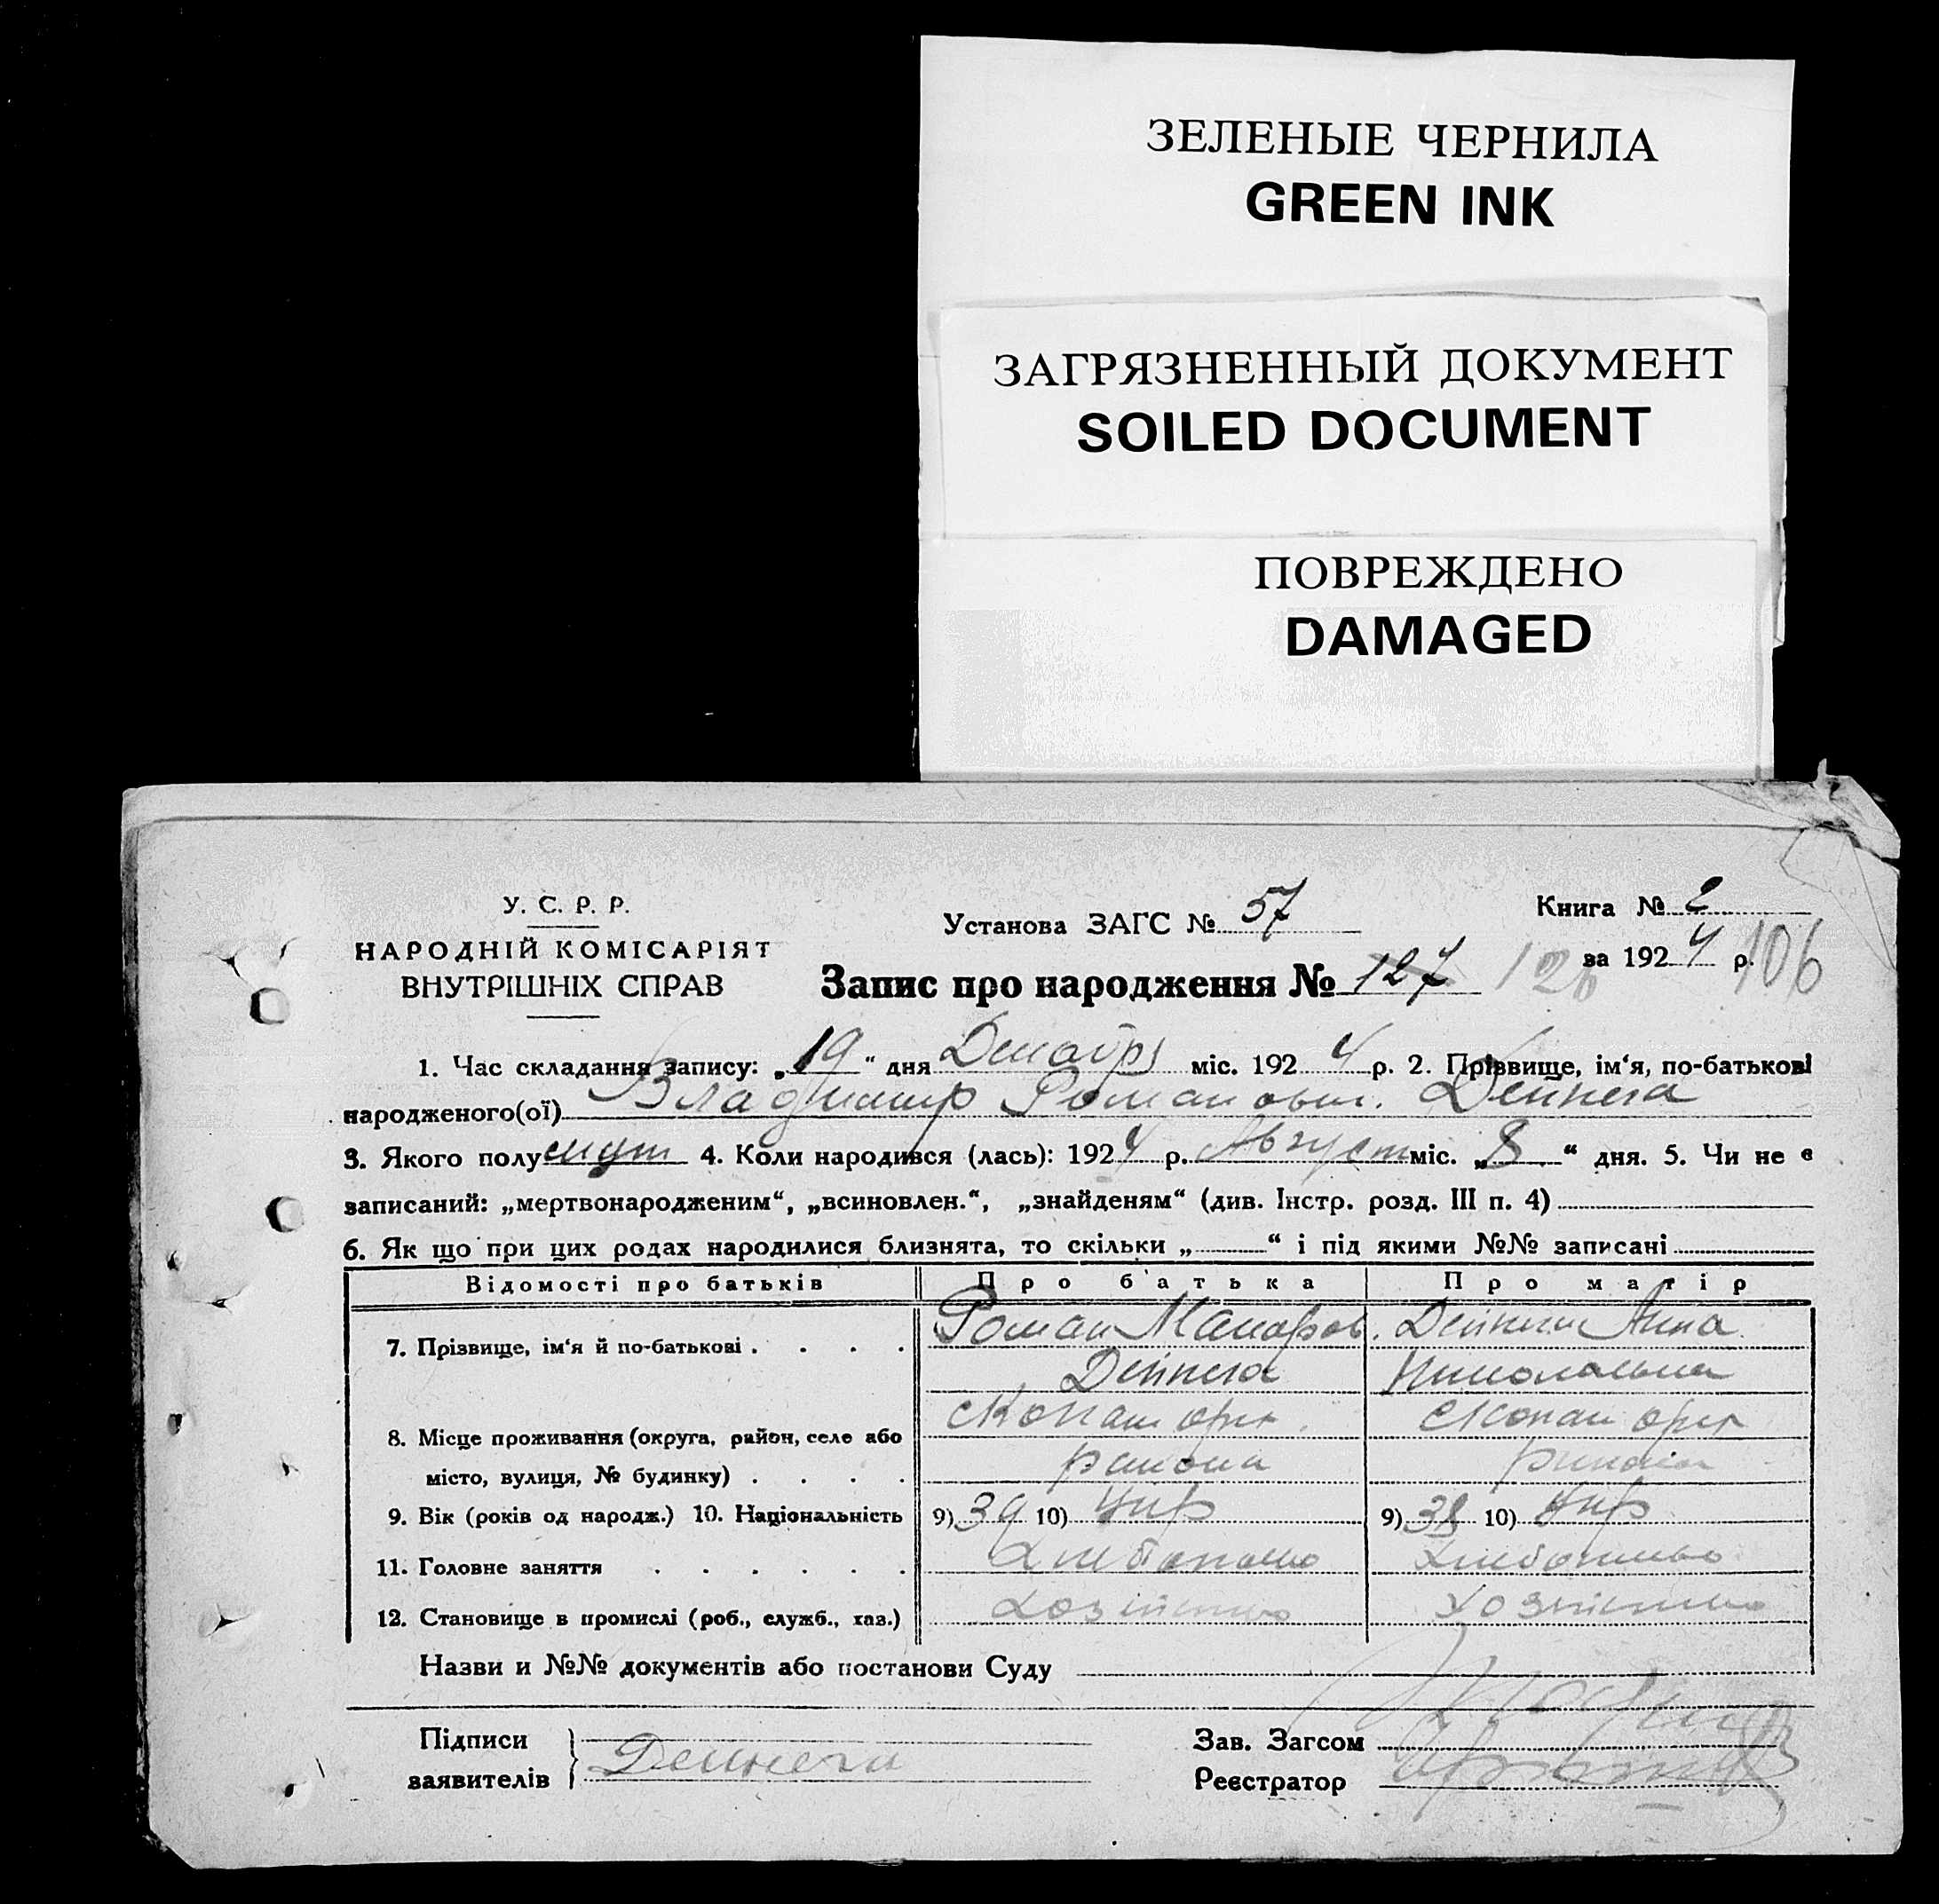 ЗЕЛЕНЫЕ ЧЕРНИЛА
GREEN INK
ЗАГРЯЗНЕННЫЙ ДОКУМЕНТ
SOILED DOCUMENT
ПОВРЕЖДЕНО
DAMAGED
У. С. Р. Р.
НАРОДНІЙ КОМІСАРІЯТ
ВНУТРІШНІХ СПРАВ
Установа ЗАГС № 57
Книга № 2
за 1924 р. 106
Запис про народження № 127 128
1. Час складання запису: „19“ дня Декабря міс. 1924 р. 2. Прізвище, ім‘я, по-батькові
народженого(ої) Владимир Романович. Дейнега
3. Якого полу муж 4. Коли народився (лась): 1924 р. Август міс. „8“ дня. 5. Чи не є
записаний: „мертвонародженим“, „всиновлен.“, „знайденям“ (див. Інстр. розд. III п. 4)
6. Як що при цих родах народилися близнята, то скільки „ “ і під якими №№ записані
Відомості про батьків Про батька Про матір
7. Прізвище, ім‘я й по-батькові . . . . Роман Макаров. Дейнега Анна
Дейнега Николаевна
8. Місце проживання (округа, район, село або
місто, вулиця, № будинку) . . . .
района района
9. Вік (років од народж.) 10. Національність 9) 39 10) Укр 9) 38 10) Укр
11. Головне заняття . . . . . .
12. Становище в промислі (роб., служб., хаз.)
Назви и №№ документів або постанови Суду
Підписи
заявителів Дейнега
Зав. Загсом
Реєстратор